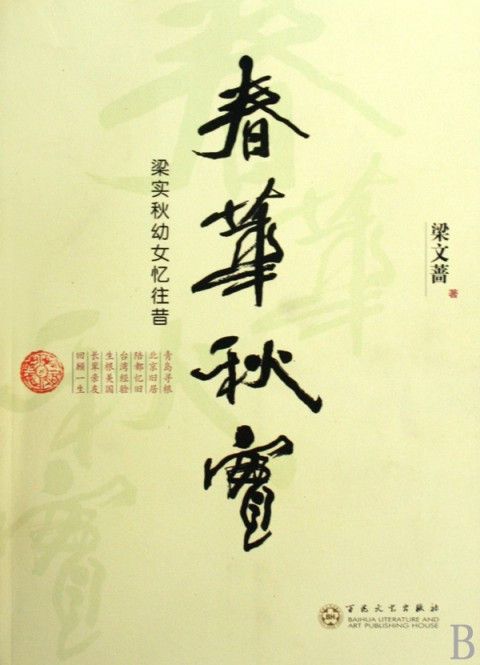 春華秋實
梁实秋幼女忆往昔
梁文蔷 著
青岛寻根
北京旧居
陪都忆旧
台湾经验
生根美国
长辈亲友
回顾一生
BH
百花文艺出版社
BAIHUA LITERATURE AND
ART PUBLISHING HOUSE
B